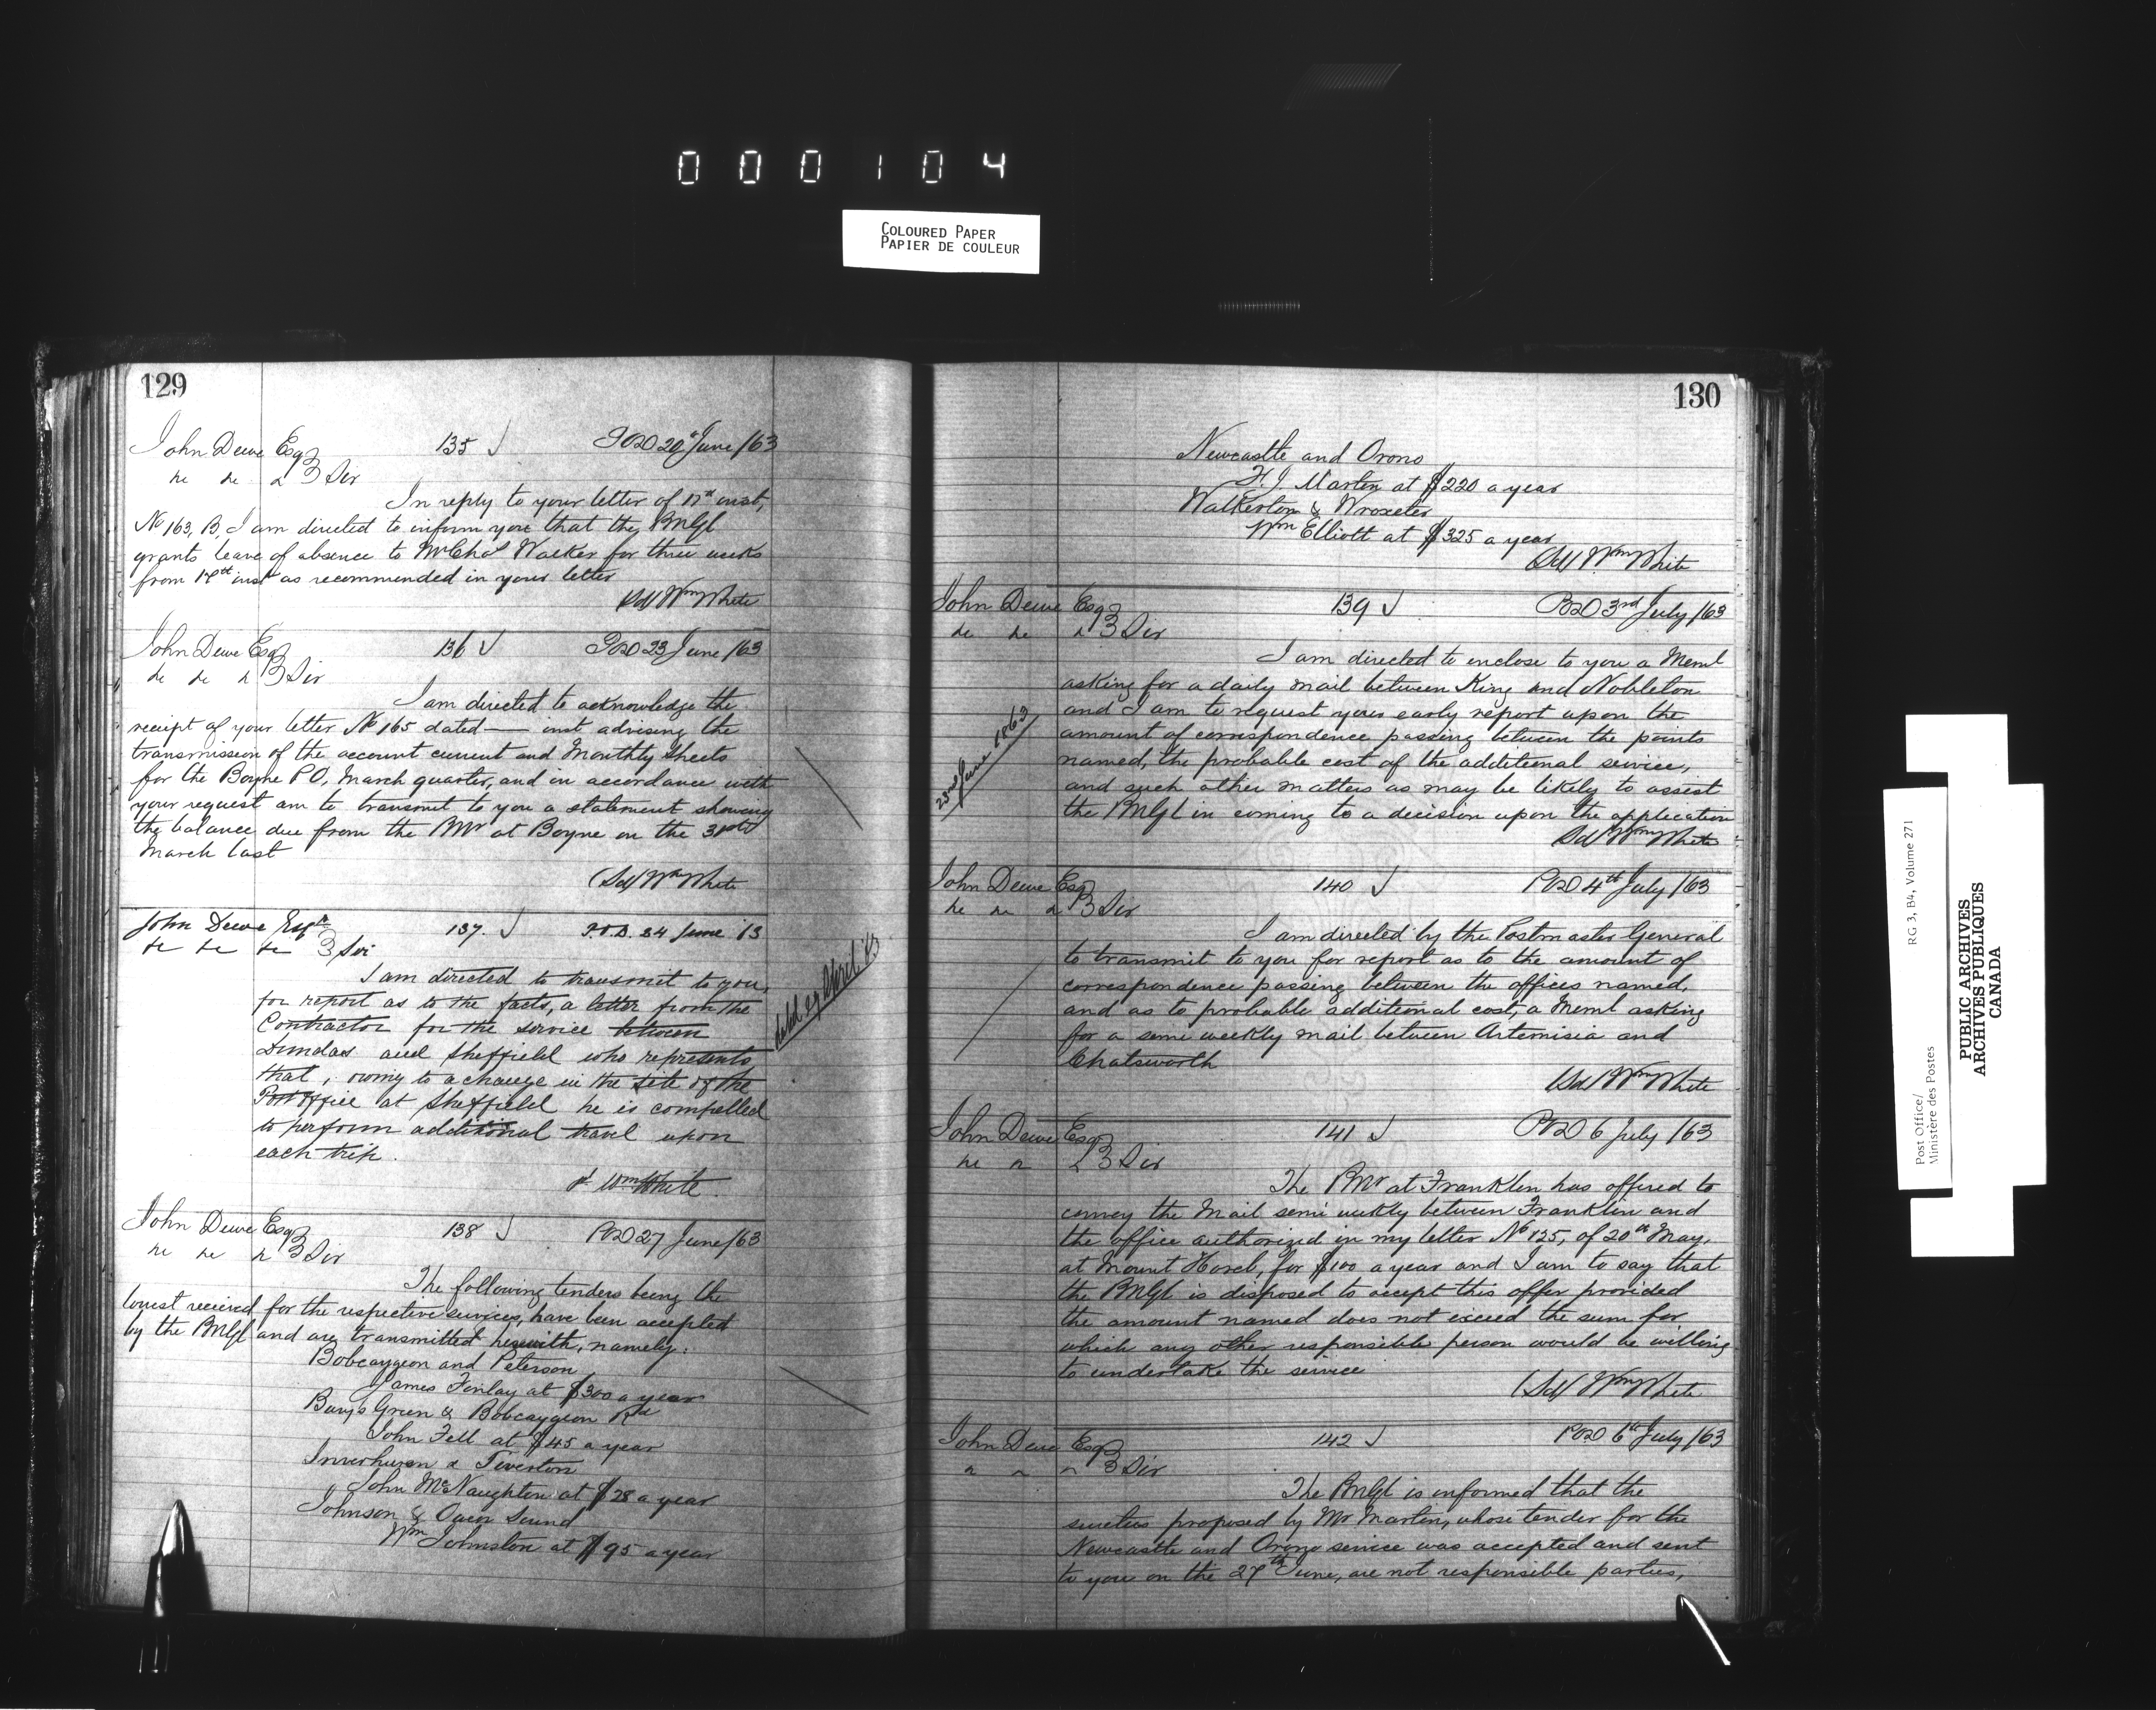 000104
COLOURED PAPER
PAPIER DE COULEUR
129
John Dewe Esq 135 POD 20 June /63
Sir
In reply to your letter of 17th inst,
No 163, B, I am directed to inform you that the PMGl
grants leave of absence to Mr Chas Walker for three weeks
from 17th inst as recommended in your letter
(Sd) Wm White
John Dewe Esq 136 POD 23 June /63
Sir
I am directed to acknowledge the
receipt of your letter No 165 dated — inst advising the
transmission of the account current and Monthly Sheets
for the Boyne PO, March quarter, and in accordance with
your request am to transmit to you a statement showing
the balance due from the PMr at Boyne on the 31st
March last
(Sd) Wm White
John Dewe Esqr 137. P.O.D. 24 June 63
Sir
I am directed to transmit to you,
for report as to the facts, a letter from the
Contractor for the service between
Dundas and Sheffield who represents
that, owing to a change in the site of the
Post Office at Sheffield he is compelled
to perform additional travel upon
each trip.
Wm White.
dated 29 April 63
John Dewe Esq 138 POD 27 June /63
Sir
The following tenders being the
lowest received for the respective services, have been accepted
by the PMGl and are transmitted herewith, namely:
Bobcaygeon and Peterson
James Finlay at $300 a year
Burys Green & Bobcaygeon Rd
John Fell at $45 a year
Inverhuron & Tiverton
John McNaughton at $28 a year
Johnson & Owen Sound
Wm Johnston at $95 a year
130
Newcastle and Orono
H.J. Martin at $220 a year
Walkerton & Wroxeter
Wm Elliott at $325 a year
(Sd) Wm White
John Dewe Esq 139 POD 3rd July /63
Sir
I am directed to enclose to you a Meml
asking for a daily mail between King and Nobleton
and I am to request your early report upon the
amount of correspondence passing between the points
named, the probable cost of the additional service,
and such other matters as may be likely to assist
the PMGl in coming to a decision upon the application
Sd Wm White
23rd June 1863
John Dewe Esq 140 POD 4th July /63
Sir
I am directed by the Postmaster General
to transmit to you for report as to the amount of
correspondence passing between the offices named,
and as to probable additional cost, a Meml asking
for a semi weekly mail between Artemisia and
Chatsworth
(Sd) Wm White
John Dewe Esq 141 POD 6 July /63
Sir
The PMr at Franklin has offered to
convey the Mail semi weekly between Franklin and
the office authorized in my letter No 125, of 20th May,
at Mount Horeb, for $100 a year and I am to say that
the PMGl is disposed to accept this offer provided
the amount named does not exceed the sum for
which any other responsible person would be willing
to undertake the service
(Sd) Wm White
John Dewe Esq 142 POD 6th July /63
Sir
The PMGl is informed that the
sureties proposed by Mr Martin, whose tender for the
Newcastle and Orono service was accepted and sent
to you on the 27th June, are not responsible parties,
RG 3, B4, Volume 271
Post Office/
Ministère des Postes
PUBLIC ARCHIVES
ARCHIVES PUBLIQUES
CANADA